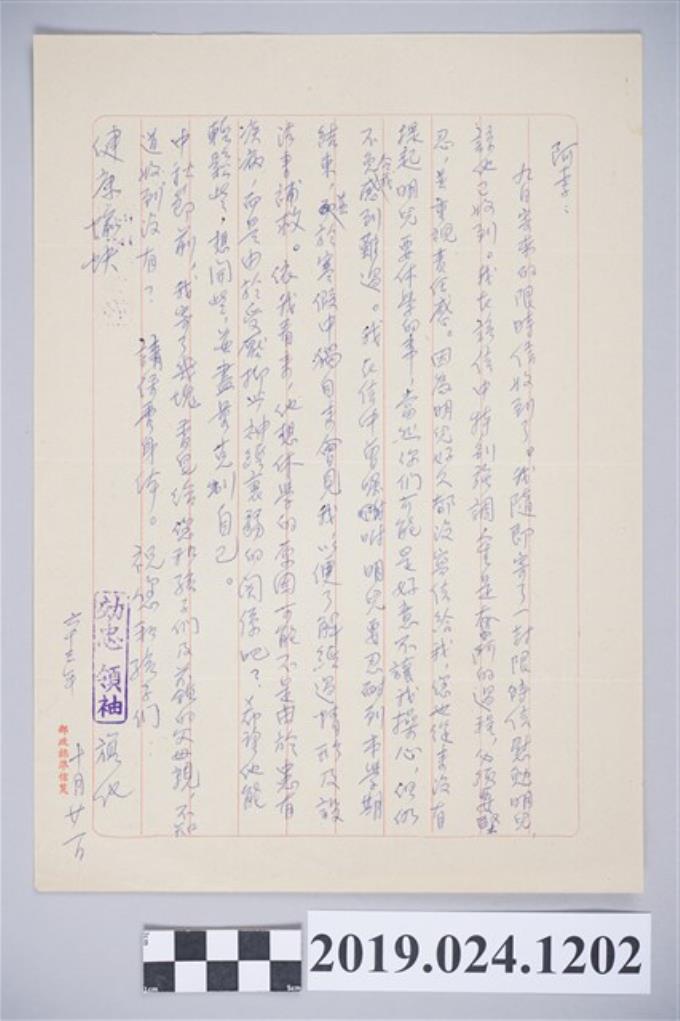 阿李：
九日寄來的限時信收到了。我隨即寄了一封限時信慰勉明兒，
該他已收到。我在該信中特別強調人生是奮鬥的過程，必須要堅
忍，並重視責任感。因為明兒好久都沒寫信給我，您也從來沒有
提起明兒要休學的事，當然你們可能是好意不讓我操心，但仍
不免令我感到難過。我在信中曾囑咐明兒要忍耐到本學期
結束，並於寒假中獨自來會見我，以便了解經過情形及設
法補救。依我看來，他想休學的原因可能不是由於患有
疾病，而是由於受壓抑或神經衰弱的關係吧？希望他能
輕鬆些，想開些，並盡量克制自己。
中秋節前，我寄了幾塊書包給您和孩子們及父母親，不知
道收到沒有？ 請保重身体。祝您和孩子們
健康愉快
旗化
六十三年十月廿一日
効忠領袖
郵政標準信箋
2019.024.1202